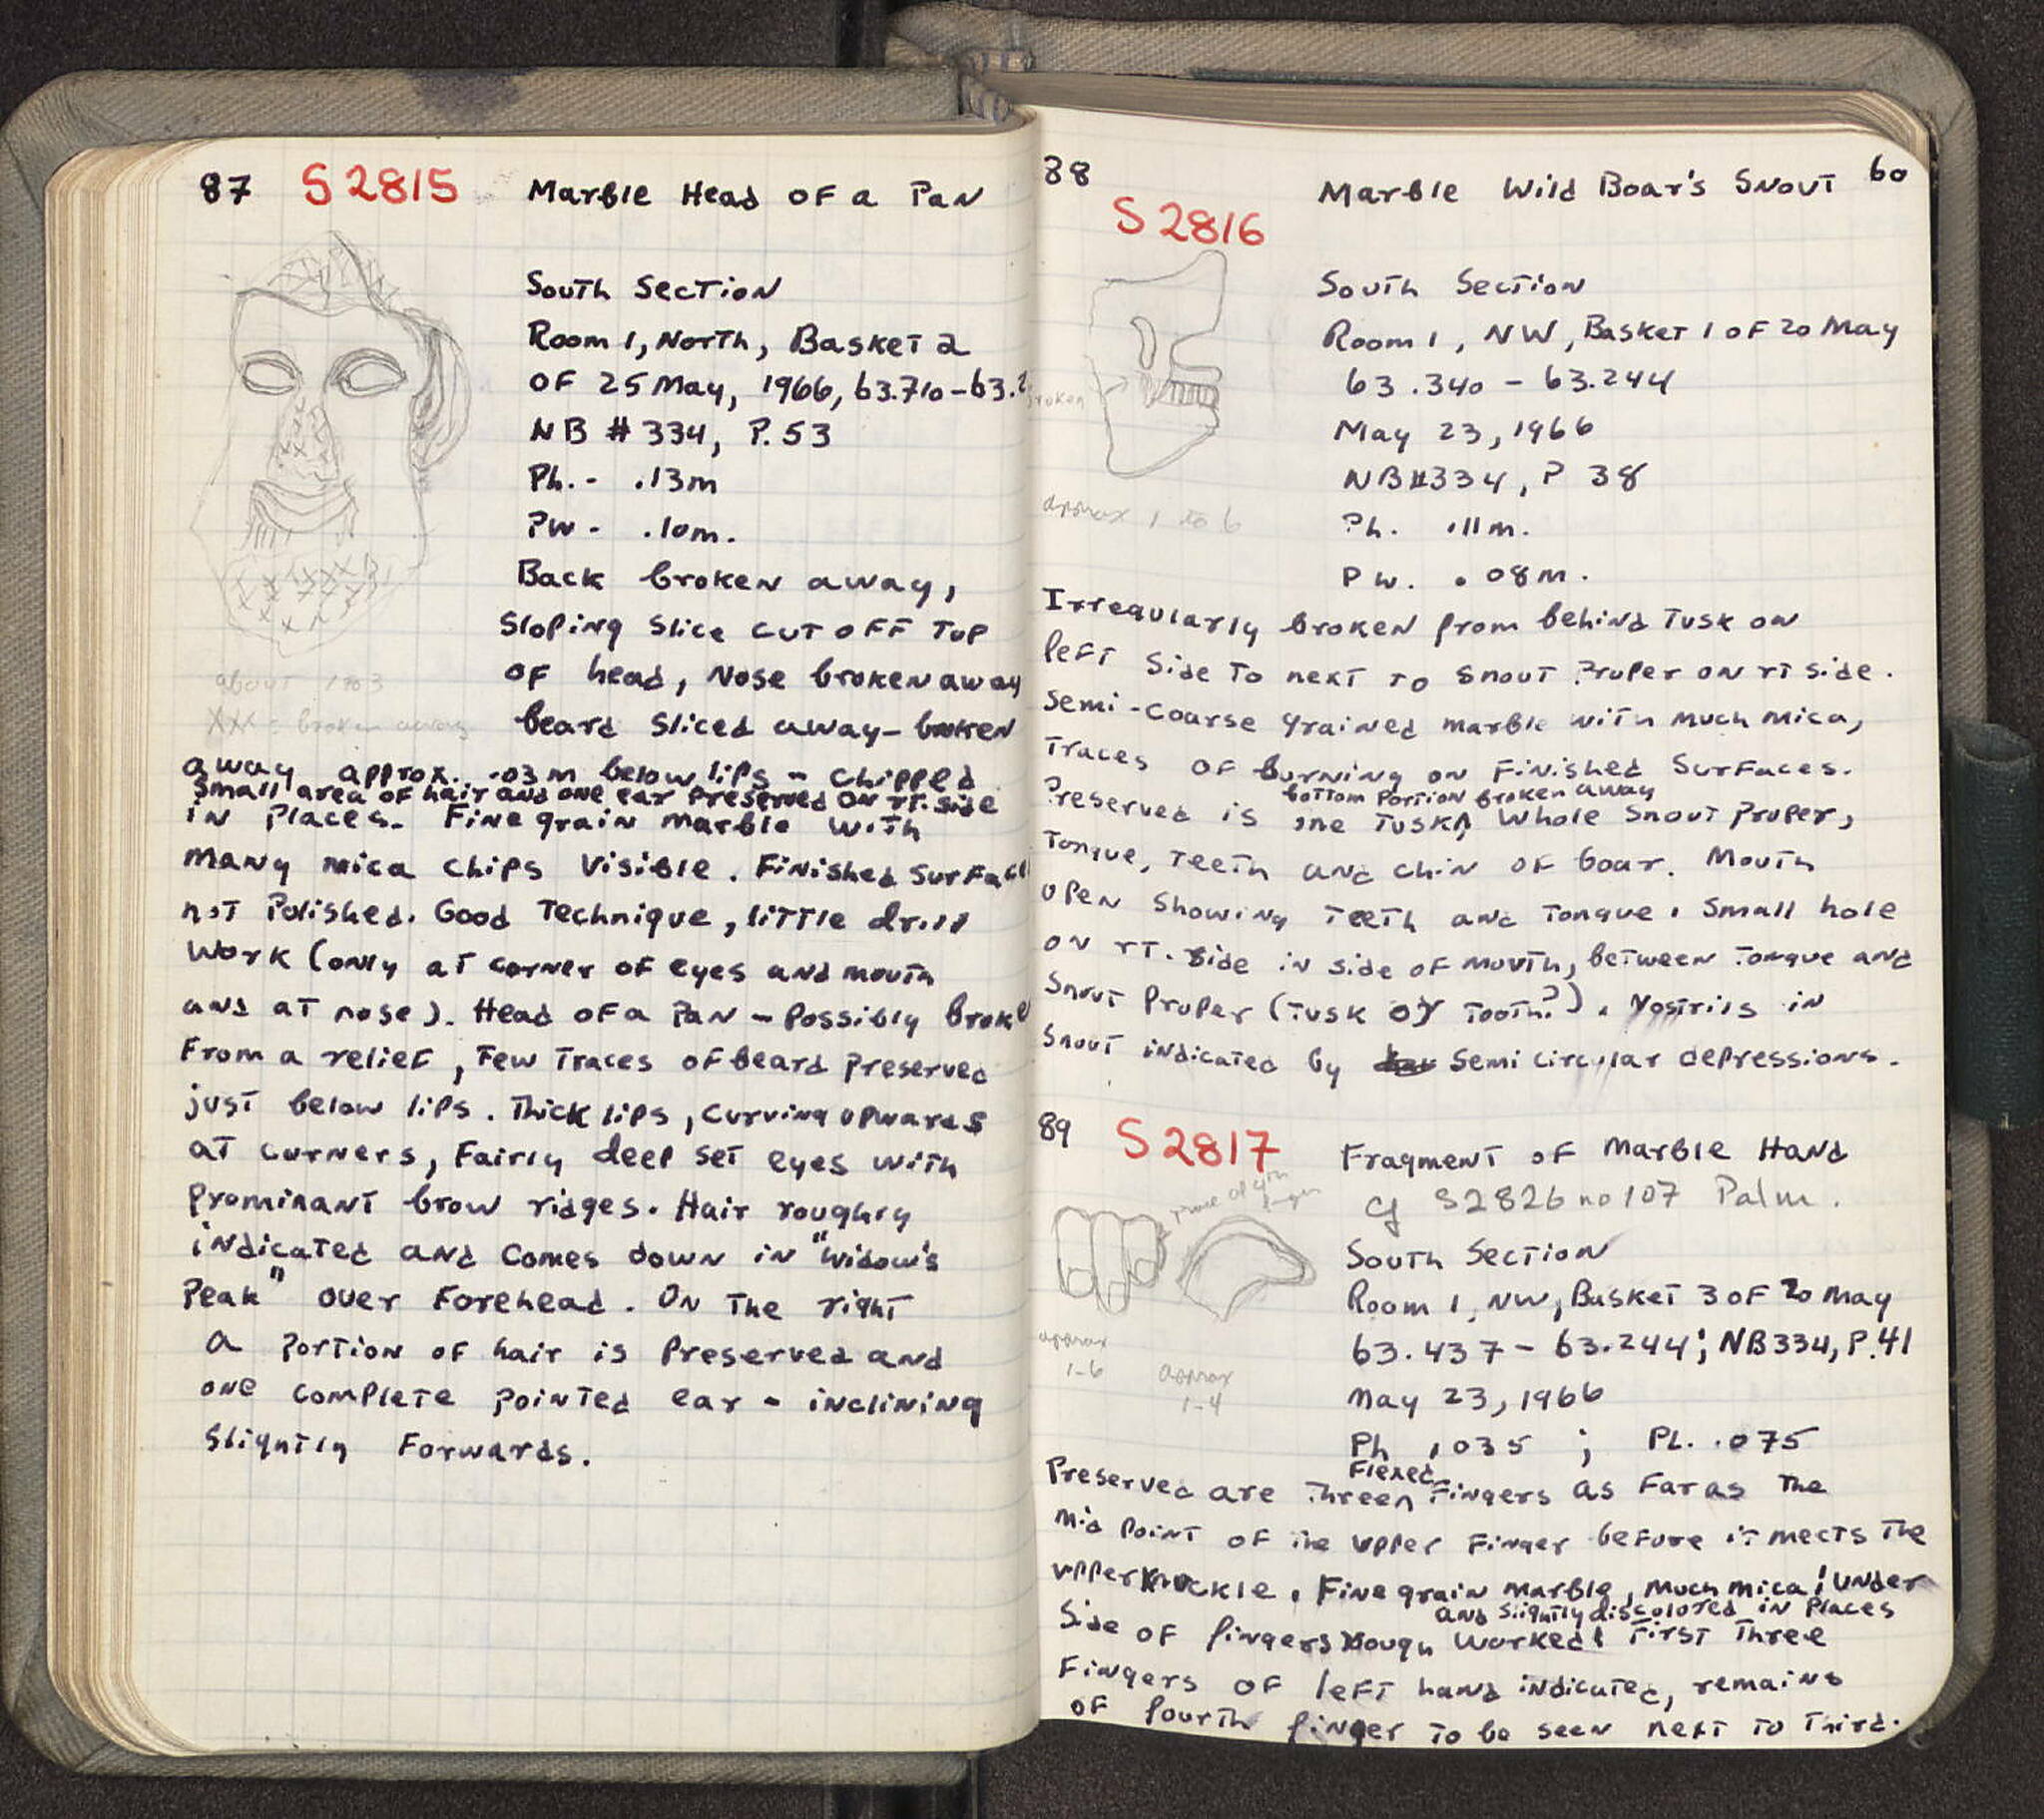 87 S 2815 Marble Head of a Pan
South Section
Room 1, North, Basket 2
of 25 May, 1966, 63.710-63.2
NB # 334, P. 53
Ph. - .13m
Pw - .10m.
Back broken away,
Sloping slice cut off top
of head, Nose broken away
beard sliced away - broken
about 1 to 3
XXX = broken away
away approx. .03m below lips - chipped
small area of hair and one ear preserved on rt. side
in places. Fine grain marble with
many mica chips visible. Finished surface
not polished. Good technique, little drill
work (only at corner of eyes and mouth
and at nose). Head of a Pan - Possibly broke
from a relief, Few traces of beard preserved
just below lips. Thick lips, curving upwards
at corners, Fairly deep set eyes with
prominant brow ridges. Hair roughly
indicated and comes down in "widow's
Peak" over Forehead. On the right
a portion of hair is preserved and
one complete pointed ear - inclining
slightly forwards.
88 Marble Wild Boar's Snout 60
S 2816
South Section
Room 1, NW, Basket 1 of 20 May
63.340 - 63.244
broken
May 23, 1966
NB#334, P 38
approx 1 to 6
Ph. .11m.
Pw. .08m.
Irregularly broken from behind tusk on
left side to next to snout proper on rt side.
Semi-coarse grained marble with much mica,
traces of burning on finished surfaces.
bottom portion broken away
Preserved is one tusk^ whole snout proper,
tongue, teeth and chin of boar. Mouth
open showing teeth and tongue. Small hole
on rt. side in side of mouth, between tongue and
snout proper (tusk or tooth?). Nostrils in
snout indicated by semi circular depressions.
89 S 2817 Fragment of Marble Hand
cf S2826 no 107 Palm.
trace of 4th
finger
South Section
Room 1, NW, Basket 3 of 20 May
63.437 - 63.244; NB 334, P. 41
approx
1-6
approx
1-4
May 23, 1966
Ph .035 ; PL. .075
Flexed
Preserved are three^ fingers as far as the
mid point of the upper finger before it meets the
upper knuckle. Fine grain marble, much mica! Under
and slightly discolored in places
side of fingers rough worked! First three
fingers of left hand indicated, remains
of fourth finger to be seen next to third.